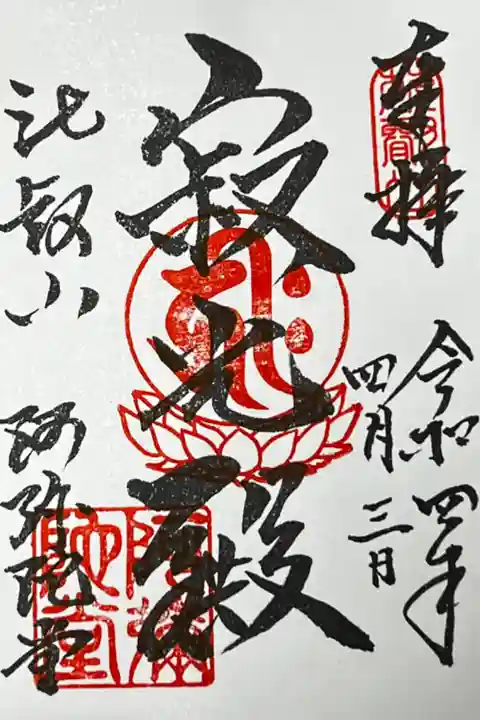 奉拝
令和四年
四月三日
寂光殿
比叡山
阿弥陀堂